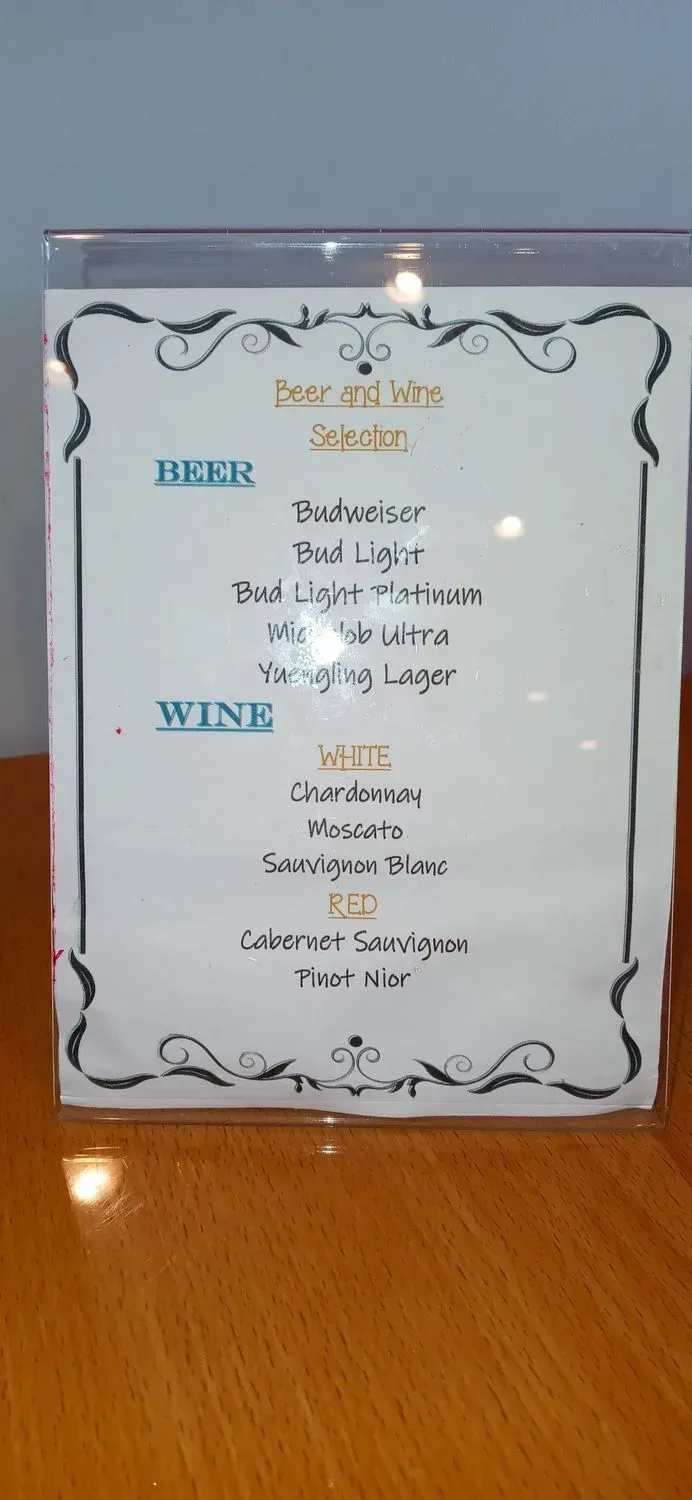 Beer and Wine
Selection
BEER
Budweiser
Bud Light
Bud Light Platinum
Ultra
Yuengling Lager
WINE
WHITE
Chardonnay
Moscato
Sauvignon Blanc
RED
Cabernet Sauvignon
Pinot Nior